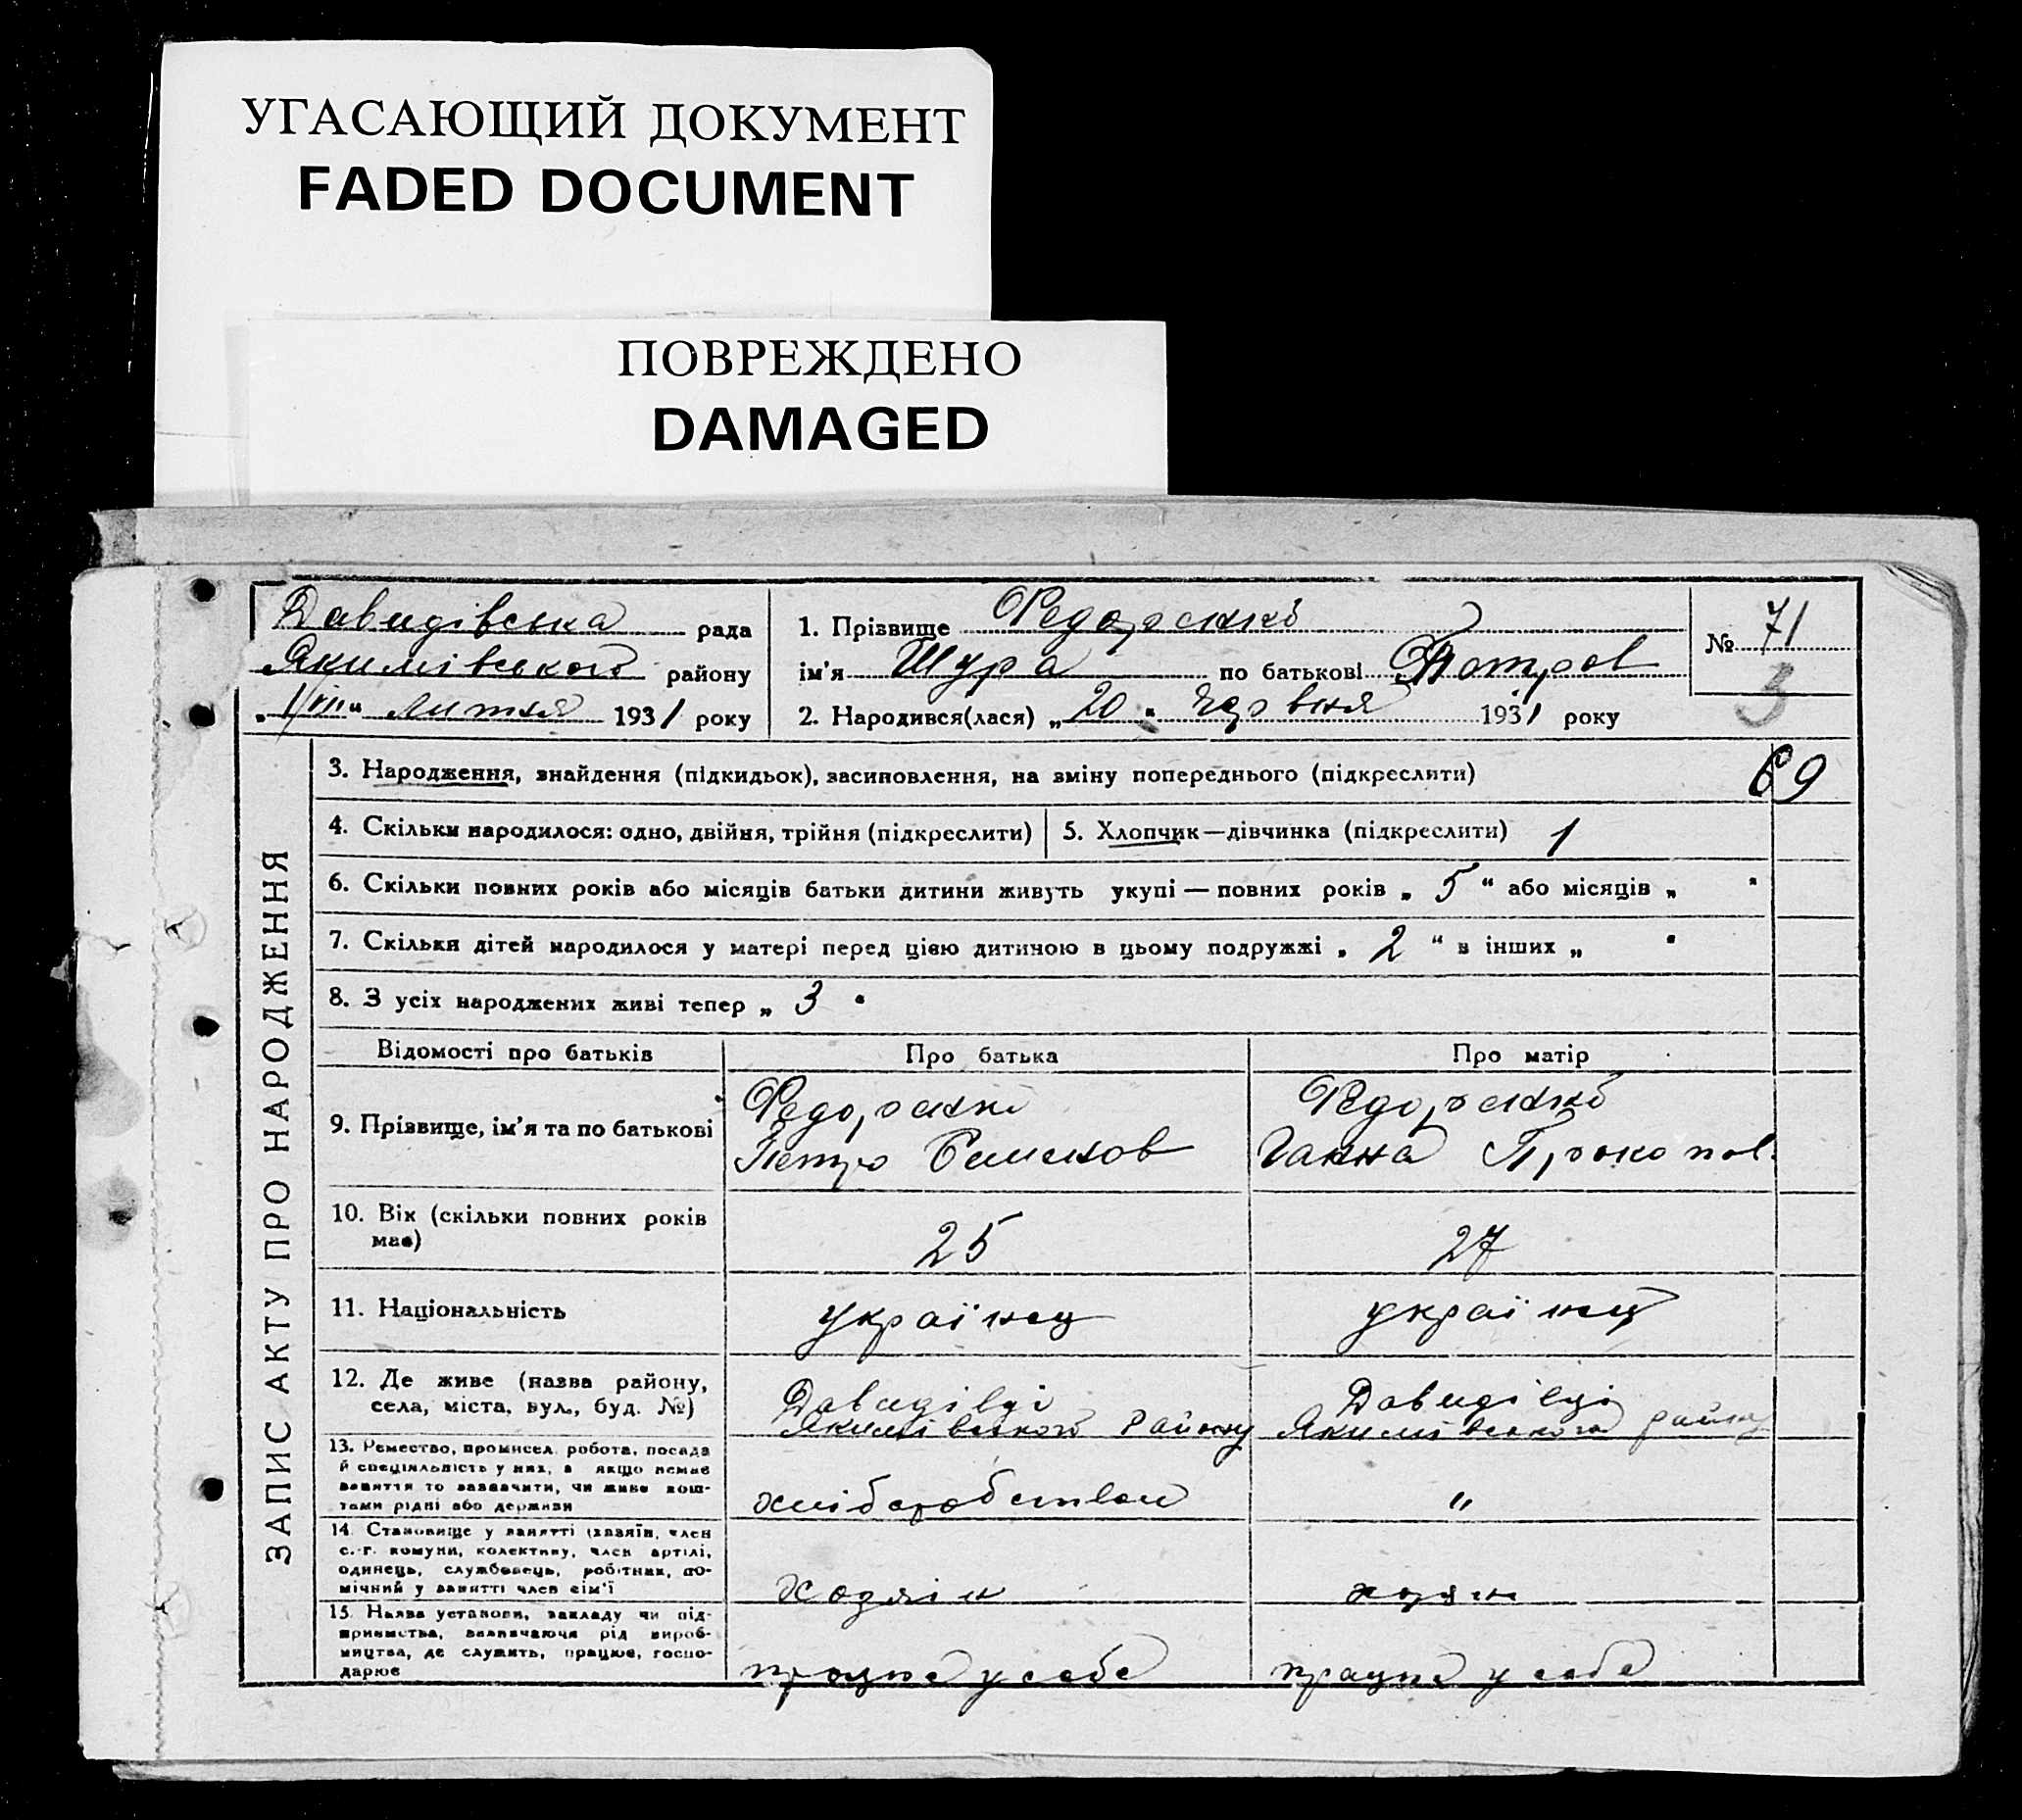 УГАСАЮЩИЙ ДОКУМЕНТ
FADED DOCUMENT
ПОВРЕЖДЕНО
DAMAGED
Давидівська рада
Якимівського району
" липня 1931 року
1. Прізвище Федоренко
ім'я Шура по батькові Петров
2. Народився(лася) „20" червня 1931 року
№ 71
3
69
ЗАПИС АКТУ ПРО НАРОДЖЕННЯ
3. Народження, знайдення (підкидьок), засиновлення, на зміну попереднього (підкреслити)
4. Скільки народилося: одно, двійня, трійня (підкреслити)
5. Хлопчик—дівчинка (підкреслити) 1
6. Скільки повних років або місяців батьки дитини живуть укупі — повних років „ 5 " або місяців „ "
7. Скільки дітей народилося у матері перед цією дитиною в цьому подружжі „ 2 " в інших „ "
8. З усіх народжених живі тепер „ 3 "
Відомості про батьків
Про батька
Про матір
9. Прізвище, ім'я та по батькові
Федоренко
Петро Семенов
Федоренко
Ганна Прокопов.
10. Вік (скільки повних років
має)
25
27
11. Національність
українец
українец
12. Де живе (назва району,
села, міста, вул., буд. №)
Давидівці
Якимівського району
Давидівці
Якимівського району
13. Ремество, промисел, робота, посада
й спеціяльність у них, а якщо немає
заняття то зазначити, чи живе кош-
тами рідні або держави
хліборобством
"
14. Становище у занятті (хазяїн, член
с.-г. комуни, колективу, член артілі,
одинець, службовець, робітник, по-
мічний у занятті член сім'ї
хозяін
хозяін
15. Назва установи, закладу чи під-
приємства, визначаючи рід вироб-
ництва, де служить, працює, госпо-
дарює
працює у себе
працює у себе